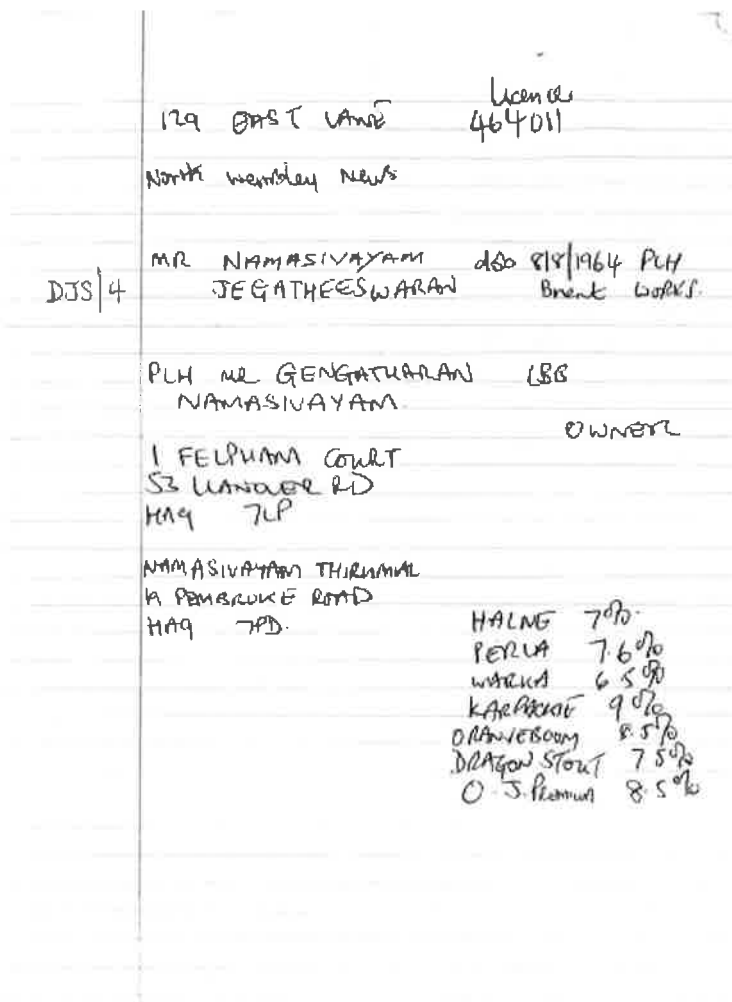 Licence
129 EAST LANE 464011
North Wembley News
MR NAMASIVAYAM dob 8/8/1964 PLH
DJS/4 JEGATHEESWARAN Brent WORKS.
PLH MR GENGATHARAN LBB
NAMASIVAYAM.
OWNER
1 FELPHAM COURT
53 HANOVER RD
HA9 7LP
NAMASIVAYAM THIRUMAL
PEMBROKE ROAD
HA9 7PD.
HALNE 7%.
PERLA 7.6%
WARKA 6.5%
KARPACKIE 9%
ORANJEBOOM 8.5%
DRAGON STOUT 7.5%
O.J. Premium 8.5%